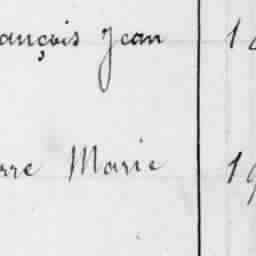 ançois Jean 1
rre Marie 19